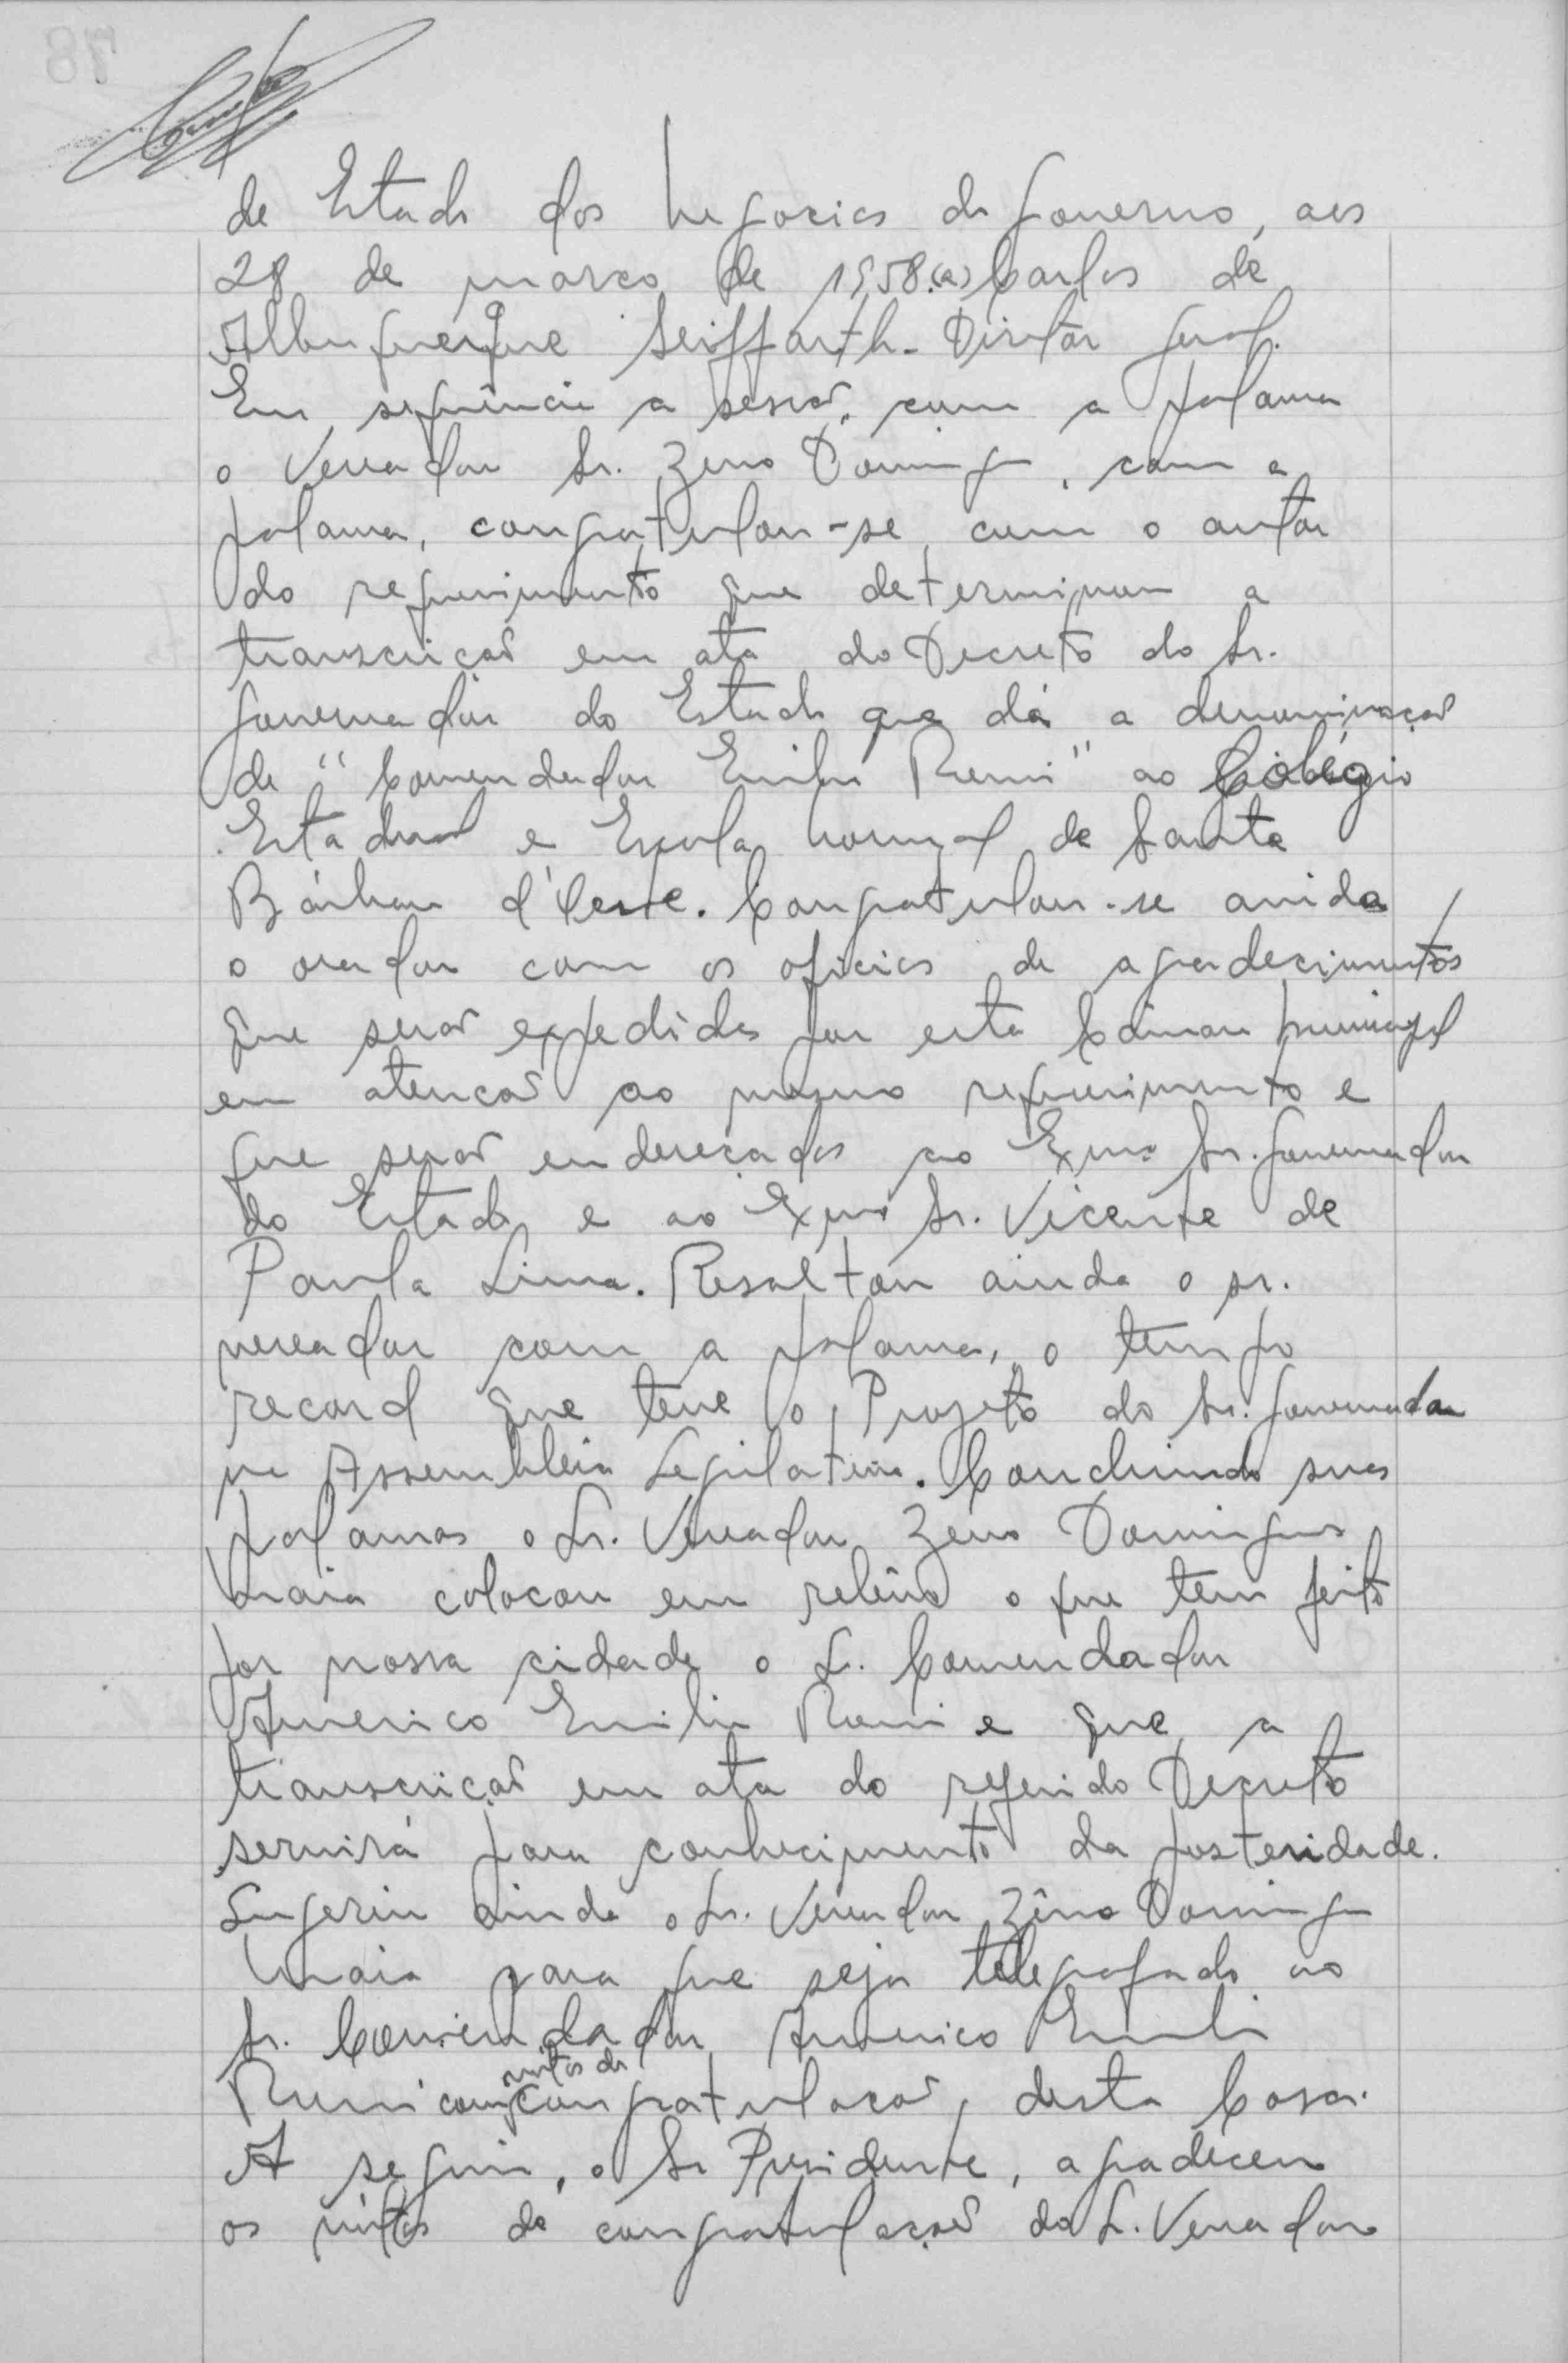 de Estado dos Negocios do Governo, aos
28 de março de 1958.(a) Carlos de
Albuquerque Seiffarth - Diretor Geral.
Em sequência a sessão, com a palavra
o Vereador Sr. Zeno Domingos, com a
palavra, congratulou-se com o autor
do requerimento que determinou a
transcrição em ata do Decreto do Sr.
Governador do Estado que dá a denominação
de "Comendador Emilio Romi" ao Colégio
Estadual e Escola Normal de Santa
Bárbara d'Oeste. Congratulou-se ainda
o orador com os oficios de agradecimentos
que serão expedidos por esta Câmara Municipal
em atenção ao mesmo requerimento e
que serão endereçados ao Exmo Sr. Governador
do Estado e ao Exmo Sr. Vicente de
Paula Lima. Resaltou ainda o sr.
vereador com a palavra, o tempo
record que teve o Projeto do Sr. Governador
na Assembléia Legislativa. Concluindo suas
palavras o Sr. Vereador Zeno Domingos
Maia colocou em relêvo o que tem feito
por nossa cidade o Sr. Comendador
Americo Emilio Romi e que a
transcrição em ata do referido Decreto
servirá para conhecimento da posteridade.
Sugeriu ainda o Sr. Vereador Zêno Domingos
Maia para que seja telegrafado ao
Sr. Comendador Americo Emilio
votos de
Romi com congratulação, desta Casa.
A seguir, o Sr Presidente, agradeceu
os vótos de congratulação do Sr. Vereador